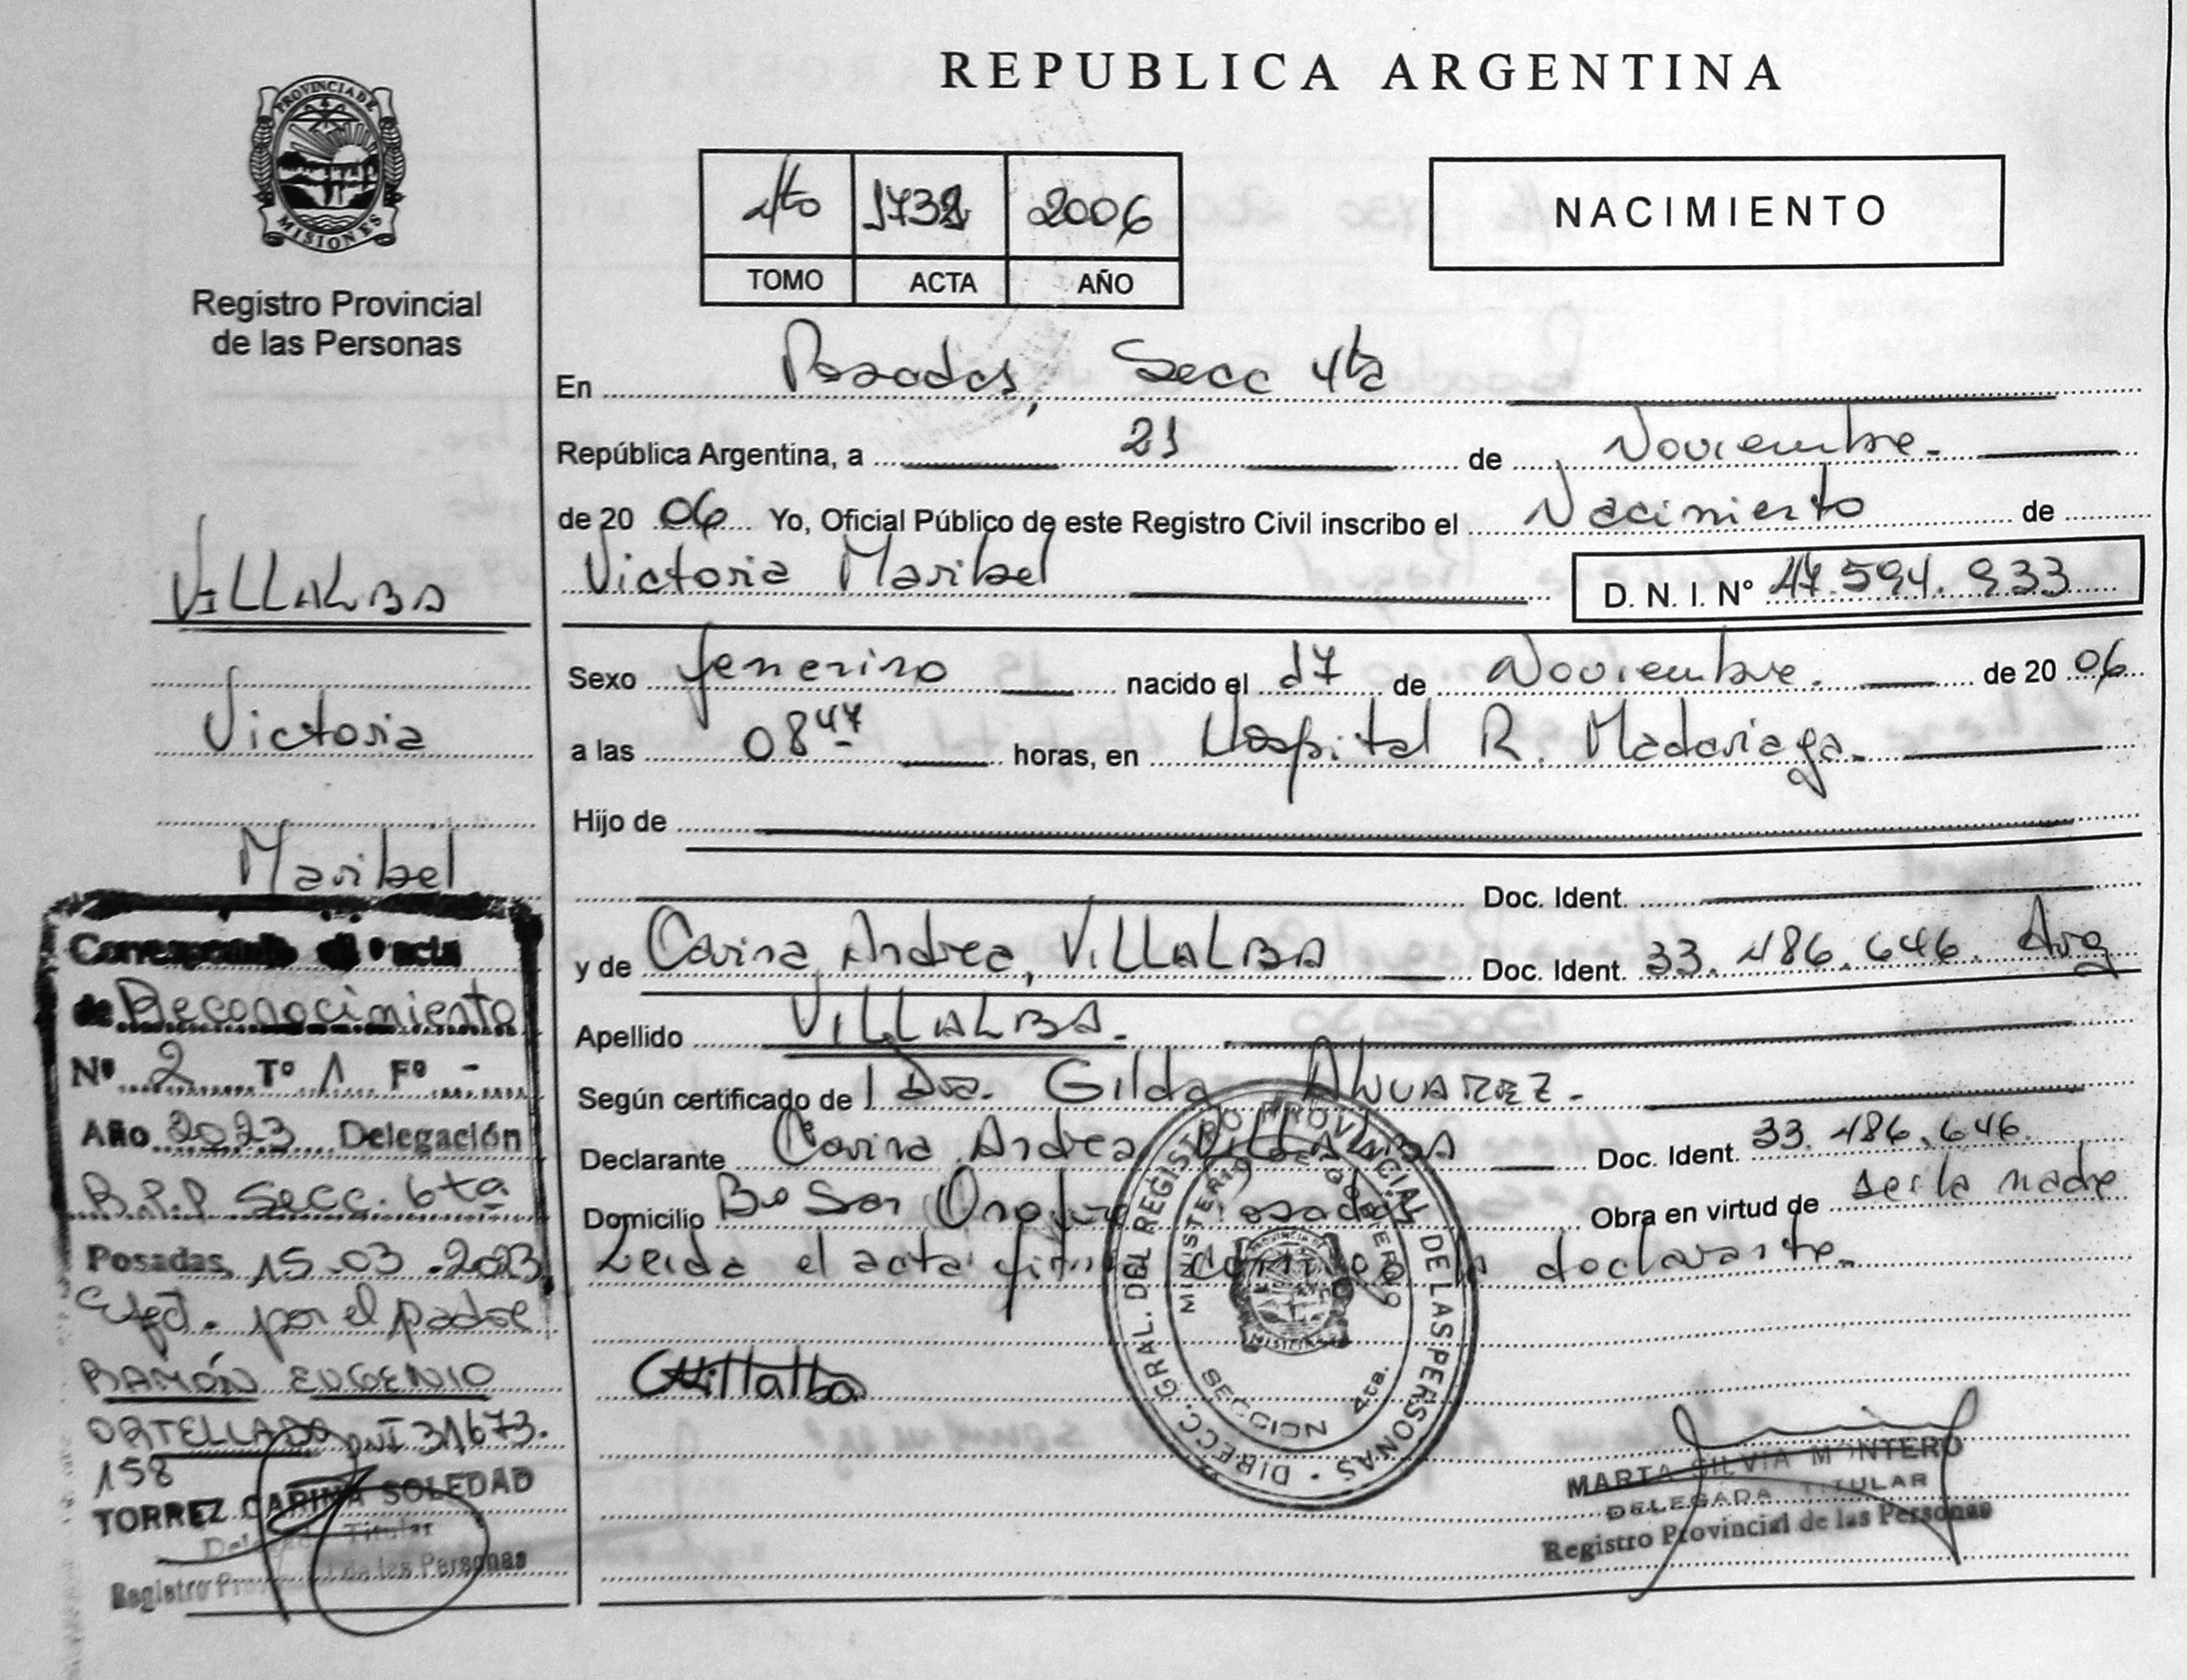 REPUBLICA ARGENTINA
PROVINCIA DE
MISIONES
Registro Provincial
de las Personas
4to 1732 2006
TOMO ACTA AÑO
NACIMIENTO
En Posadas, Secc 4ta
República Argentina, a 21 de Noviembre.
de 20 06 Yo, Oficial Público de este Registro Civil inscribo el Nacimiento de
Victoria Maribel D. N. I. Nº 47.594.933
Sexo femenino nacido el 17 de Noviembre. de 20 06
a las 08 47 horas, en Hospital R. Madariaga.
Hijo de
Doc. Ident.
y de Carina Andrea, VILLALBA Doc. Ident. 33.486.646. Arg
Apellido VILLALBA.
Según certificado de Dra. Gilda ALVAREZ.
Declarante Carina Andrea VILLALBA Doc. Ident. 33.486.646.
Domicilio Bº San Onofre Posadas Obra en virtud de ser la madre
Leida el acta firma la declarante.
CVillalba
DIRECC. GRAL. DEL REGISTRO PROVINCIAL DE LAS PERSONAS
MINISTERIO DE GOBIERNO
PROVINCIA DE
MISIONES
SECCION 4ta.
MARTA SILVIA MONTERO
DELEGADA TITULAR
Registro Provincial de las Personas
VILLALBA
Victoria
Maribel
Corresponde al acta
de Reconocimiento
Nº 2 Tº 1 Fº -
Año 2023 Delegación
R.P.P Secc. 6ta
Posadas, 15-03-2023
Efect. por el padre
RAMÓN EUGENIO
ORTELLADO DNI 31673.
158
TORREZ CARINA SOLEDAD
Delegada Titular
Registro Provincial de las Personas